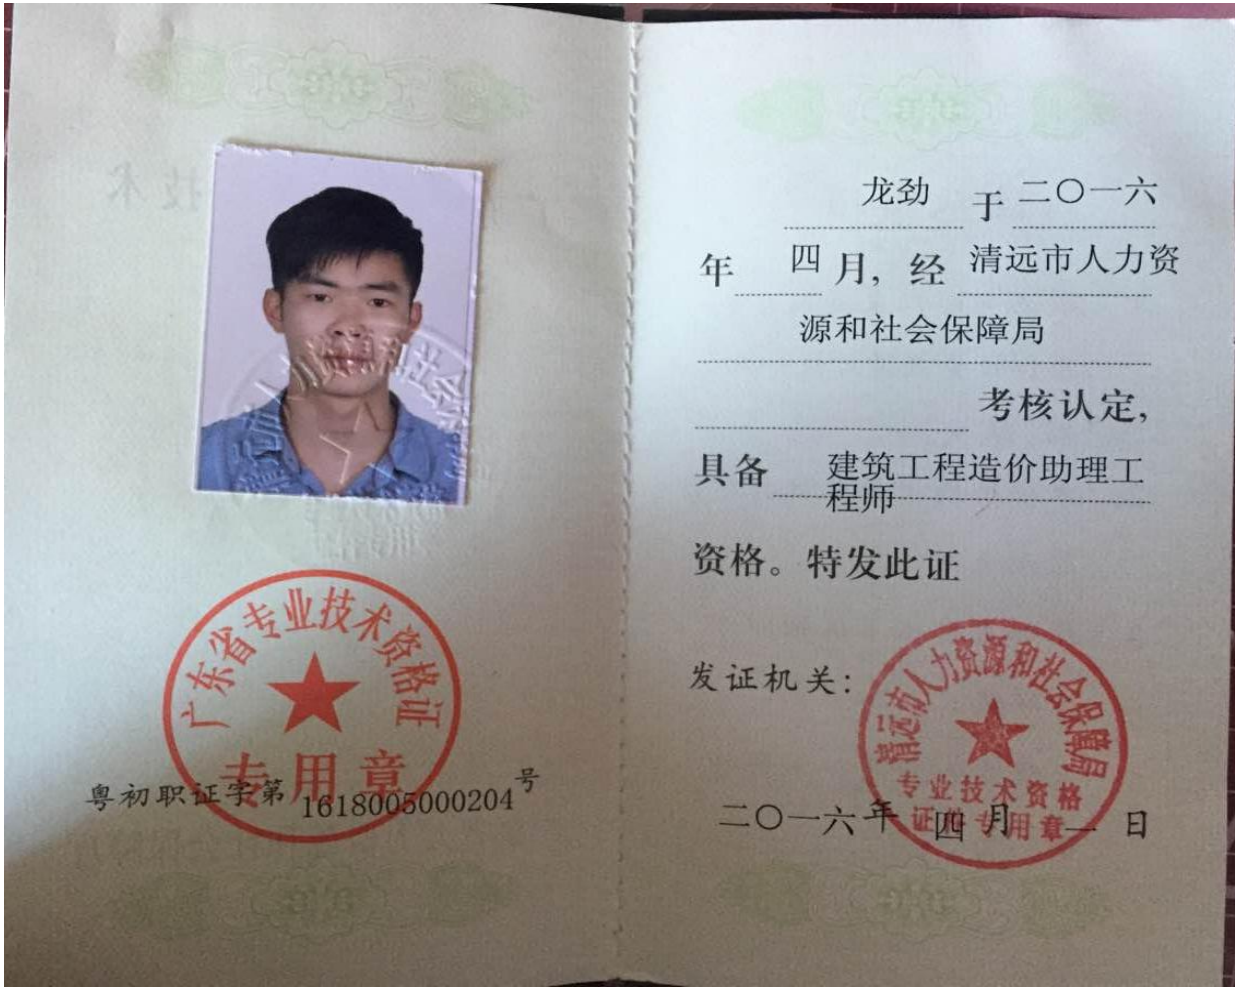 广东省专业技术资格证
专用章
粤初职证字第1618005000204号
龙劲 于 二〇一六
年 四 月, 经 清远市人力资
源和社会保障局
考核认定,
具备 建筑工程造价助理工
程师
资格。特发此证
发证机关:
清远市人力资源和社会保障局
专业技术资格
专用章
二〇一六年 四 月 一 日